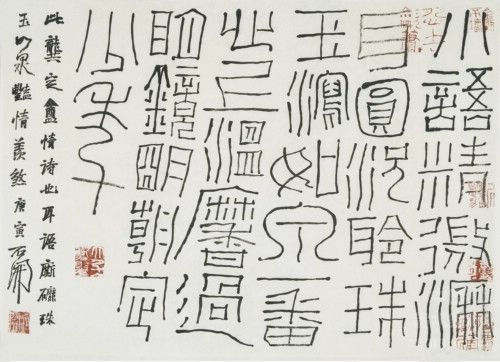 小語精微瀝
耳圓況聆珠
玉瀉如泉一番
心上溫黁過
明鏡明朝定
少年
此龔定盦情詩也耳語廝珠
玉如泉豔情羨煞庚寅石開